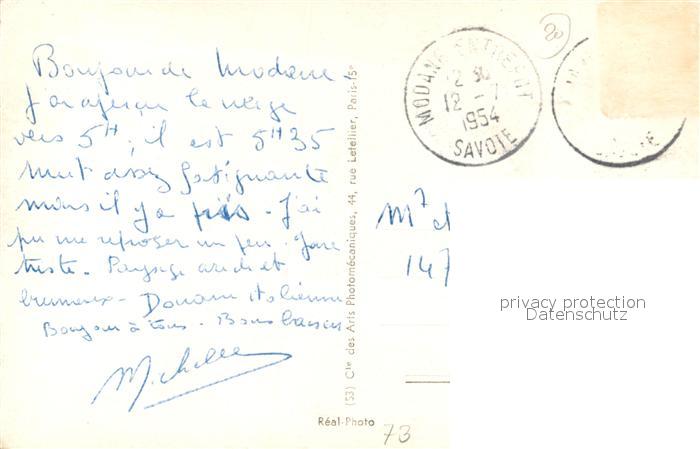 Bonjour de Modane
J'ai aperçu la neige
vers 5H, il est 5H35
Nuit assez fatiguante
mais il y a pris. J'ai
pu me reposer un peu. Gare
triste. Paysage aride et
brumeux. Douane italienne
Bonjour à tous. Bons baisers
Michelle
(53) Cie des Arts Photomécaniques, 44, rue Letellier, Paris-15e
Réal-Photo
73
20
MODANE ENTREPOT
12 - 7
1954
SAVOIE
M? et
147
privacy protection
Datenschutz